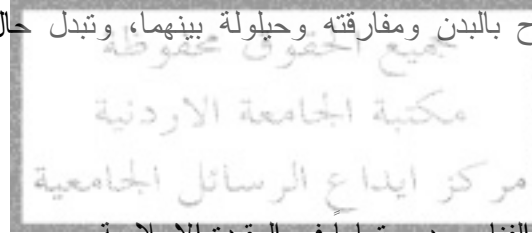 ح بالبدن ومفارقته وحيلولة بينهما، وتبدل حال
جميع الحقوق محفوظة
مكتبة الجامعة الاردنية
مركز ايداع الرسائل الجامعية